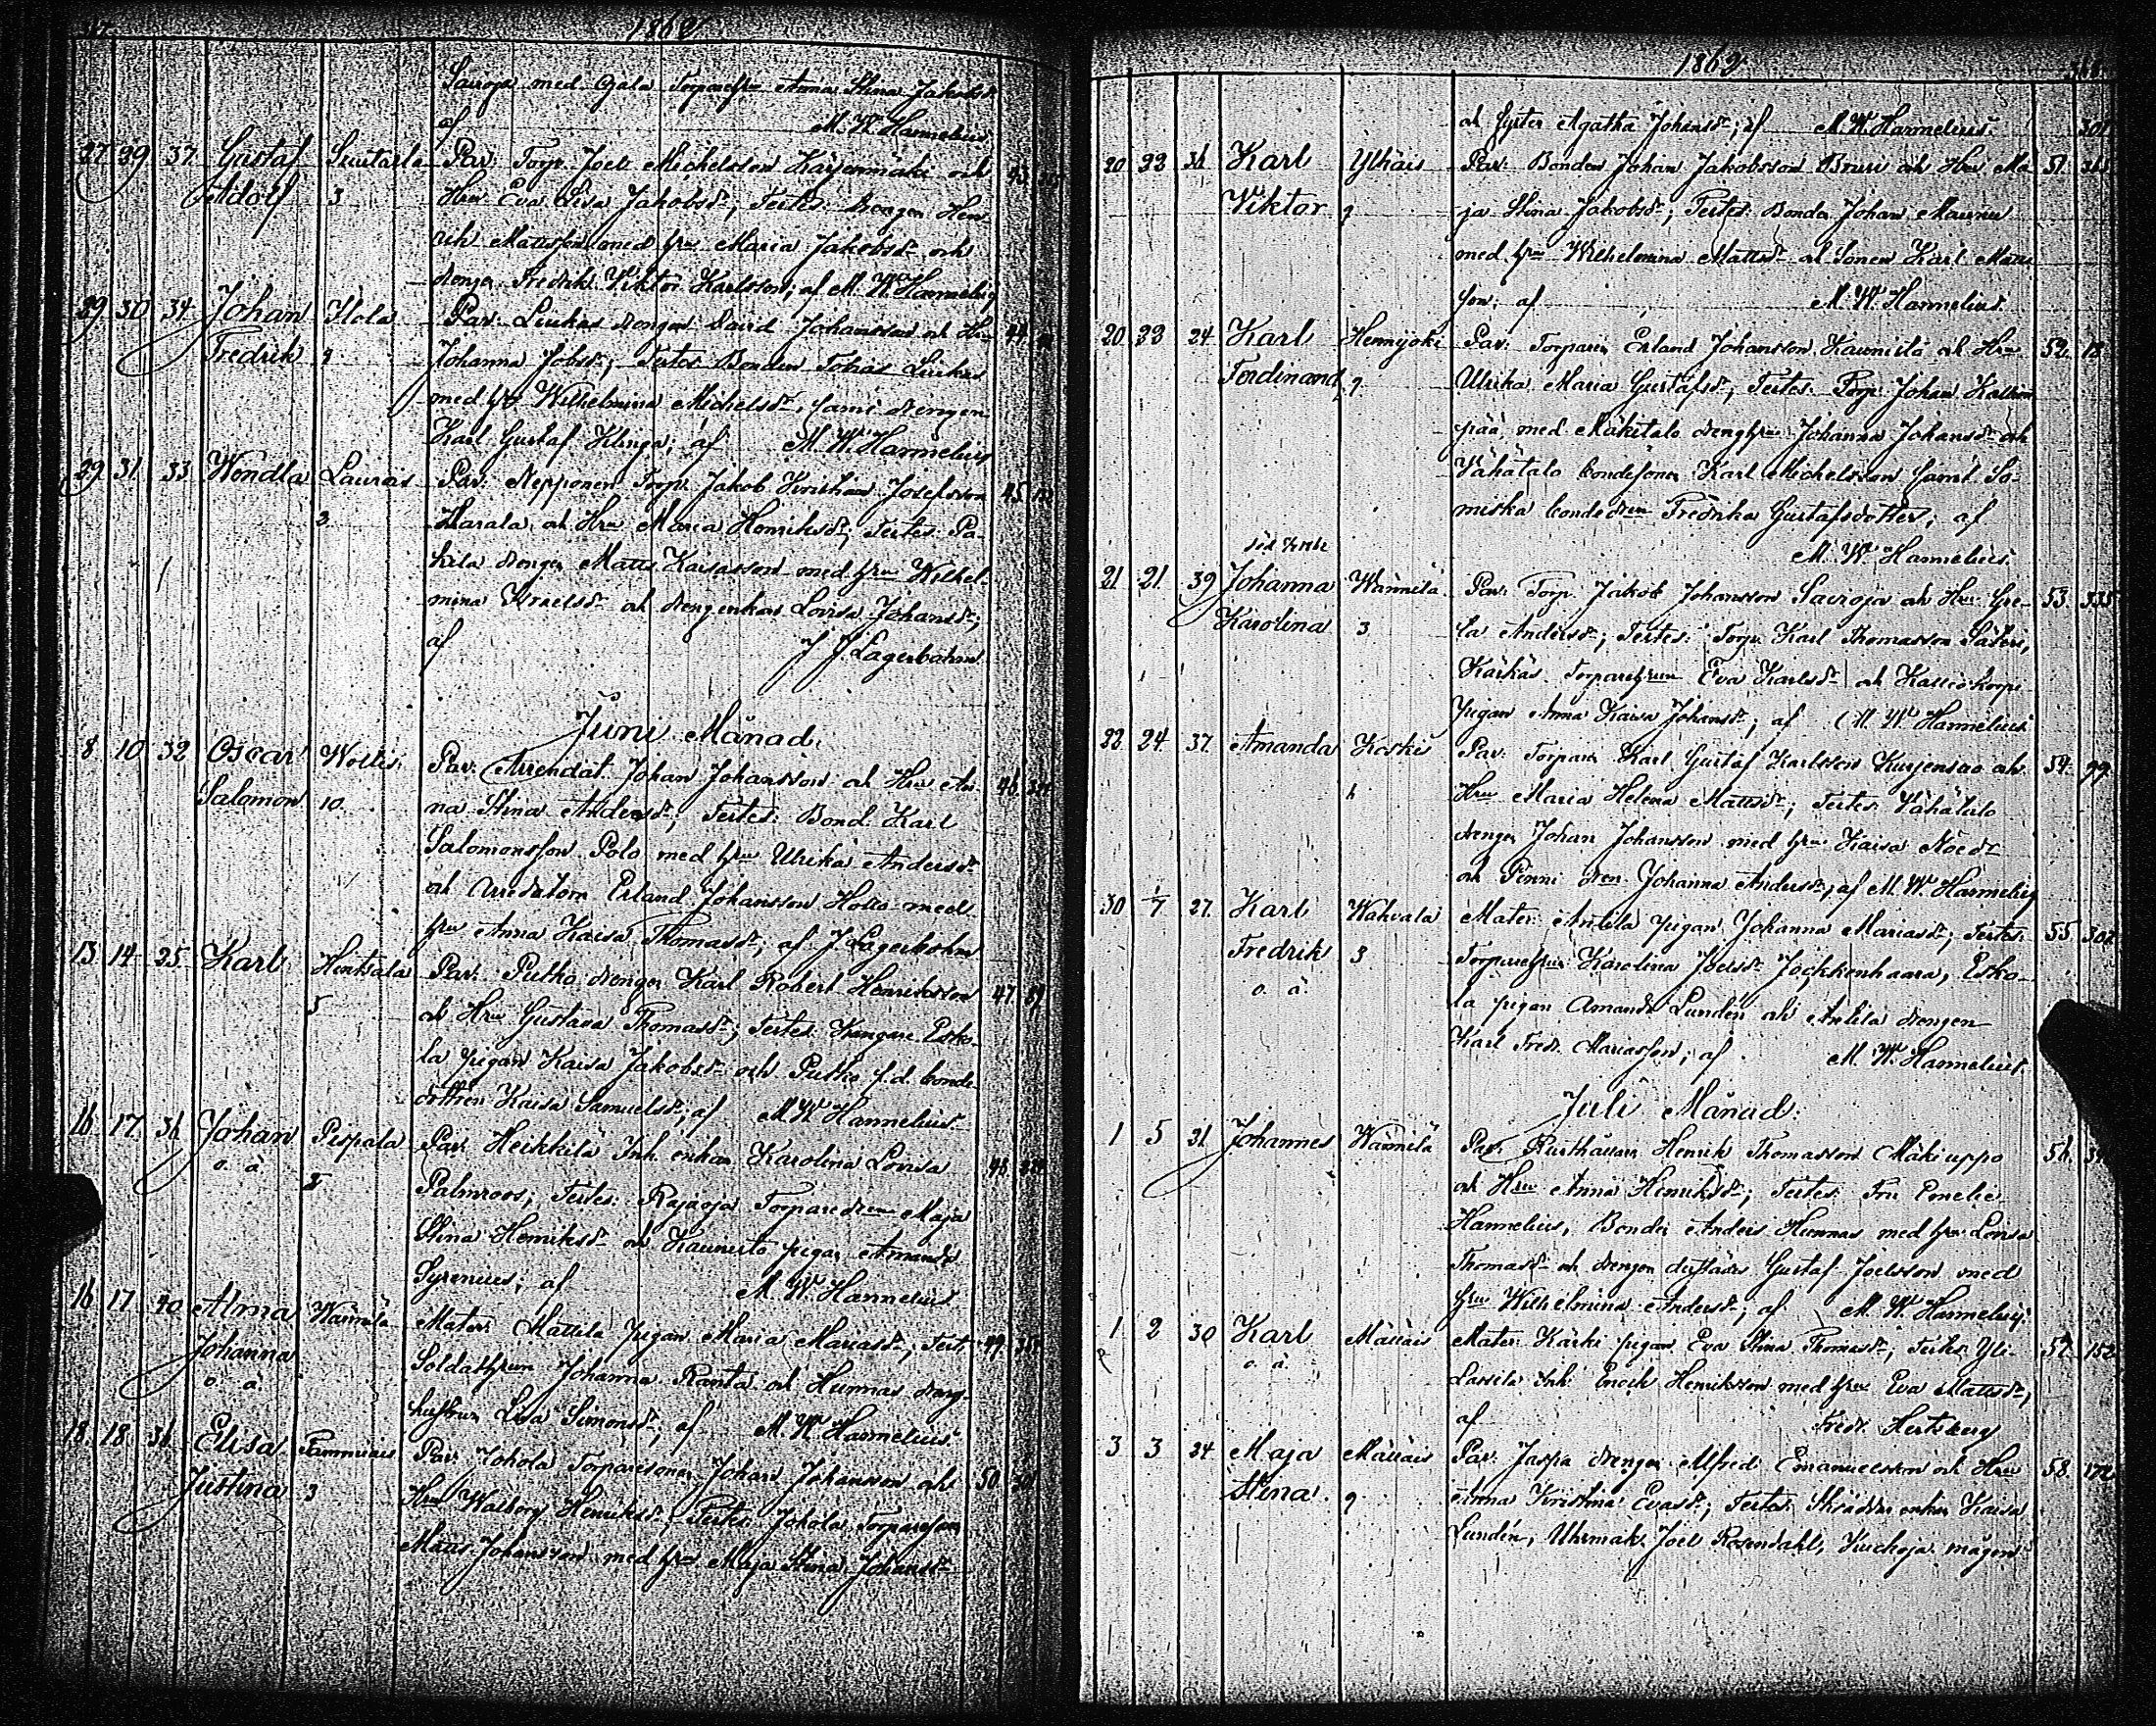 1862
Sauroja med Ojala Torparehru Anna Stina Jakobsdr
af M. W. Hannelius
27 29 37 Gustaf Suutarla Par. Torp. Joel Michelsson Karjenmäki och 43
Adolf 3 Hru Eva Lisa Jakobsdr; Testes: Drengen Hen-
rik Mattsson med hru Maria Jakobsdr och
drengen Fredrik Viktor Karlsson; af M. W. Hannelius
29 30 34 Johan Illola Par. Liukas drengen David Johansson och Hru 44
Fredrik 9 Johanna Jobsdr; Testes Bonden Tobias Liukas
med hru Wilhelmina Michelsdr, samt drengen
Karl Gustaf Klinga; af M. W. Hannelius
29 31 33 Wendla Laurois Par. Nepponen Torp. Jakob Kristian Josefsson 45
3 Harala och Hru Maria Henriksdr; Testes: Pa-
kila drengen Matts Kaisasson med hru Wilhel-
mina Israelsdr och drengenkan Lovisa Johansdr;
af J. J. Lagerbohm
Juni Månad.
8 10 32 Oscar Wollis Par. Arrendat. Johan Johansson och Hru An- 46
Salomon 10. na Stina Andersdr; Testes: Bond. Karl
Salomonsson Polo med hru Ulrika Andersdr
och Arrendatorn Erland Johansson Hollo med
hru Anna Kaisa Thomasdr; af J. Lagerbohm
13 14 25 Karl Hintsala Par. Putko drengen Karl Robert Henriksson 47 89
5 och Hru Gustava Thomasdr; Testes: Kangare Esko-
la pigan Kaisa Jakobsdr och Putko f. d. bonde
dottren Kaisa Samuelsdr; af M. W. Hannelius
16 17 36 Johan Pispala Par. Heikkilä Inh. enkan Karolina Lovisa 48
o. ä. Palmroos; Testes: Rajaoja Torparedren Maja
Stina Henriksdr och Kaunisto pigan Amanda
Syrenius; af M. W. Hannelius
16 17 40 Alma Wännilä Mater: Mattila pigan Maria Mariasdr; Test: 49
Johanna Soldathrun Johanna Ranta och Hunnas dreng-
o. ä. hustrun Lisa Simonsdr; af M. W. Hannelius
18 18 36 Elisa Tammiais Par. Johola Torparesonen Johan Johansson och 50
Justina 3 Hru Walborg Henriksdr; Testes Johola Torparesonen
Matts Johansson med hru Maja Stina Johansdr
1862
och Syster Agatha Johansdr; af M. W. Hannelius
20 23 36 Karl Yltiäis Par. Bonden Johan Jakobsson Bruuri och Hru Ma- 51
Viktor 9 ja Stina Jakobsdr; Testes: Bonden Johan Maunu
med hru Wilhelmina Mattsdr och Sonen Karl Matts-
son; af M. W. Hannelius
20 23 24 Karl Hennijoki Par. Torparen Erland Johansson Kaunisto och Hru 52 18
Ferdinand 9 Ulrika Maria Gustafsdr; Testes: Torp. Johan Kallion-
pää, med Mäkitalo drenghru Johanna Johansdr och
Vähätalo bondesonen Karl Michelsson samt So-
miska bondedren Fredrika Gustafsdotter; af
M. W. Hannelius
21 21 39 Johanna Wännilä Par. Torp. Jakob Johansson Sauroja och Hru Gre- 53 335
Karolina 3 ta Andersdr; Testes: Torp. Karl Thomasson Säteri,
Kärkäs Torparehrun Eva Karlsdr och Kalliokorpi
pigan Anna Kaisa Johansdr; af M. W. Hannelius
22 24 37 Amanda Koski Par. Torparen Karl Gustaf Karlsson Kurjensuo och 54 99
Hru Maria Helena Mattsdr; Testes: Vähätalo
drengen Johan Johansson med hru Kaisa Noedr
och Penni dren Johanna Andersdr; af M. W. Hannelius
30 1/7 27 Karl Wahvala Mater: Anttila pigan Johanna Mariasdr; Testes: 55 302
Fredrik 3 Torparehrun Karolina Joelsdr Jockkenhaara, Esko-
o. ä. la pigan Amanda Lundén och Anttila drengen
Karl Fredr. Mariasson; af M. W. Hannelius
Juli Månad.
1 5 31 Johannes Wännilä Par. Rusthållaren Henrik Thomasson Mäkiuppo 56
och Hru Anna Henriksdr; Testes: Fru Emelie
Hannelius, Bonden Anders Hunnas med hru Lovisa
Thomasdr och drengen Gustaf Joelsson med
hru Wilhelmina Andersdr; af M. W. Hannelius
1 2 30 Karl Mälläis Mater: Karki pigan Eva Stina Thomasdr; Testes Yli- 57 152
o. ä. Lassila Inh: Enock Henriksson med hru Eva Mattsdr;
af Fredr. Hertzberg
3 3 24 Maja Mälläis Par. Jaspa drengen Alfred Emanuelsson och Hru 58 172
Stina 9 Anna Kristina Evasdr; Testes: Skräddar enkan Kaisa
Lundén, Uhrmak. Joel Rosendahl, Kuckoja mågen